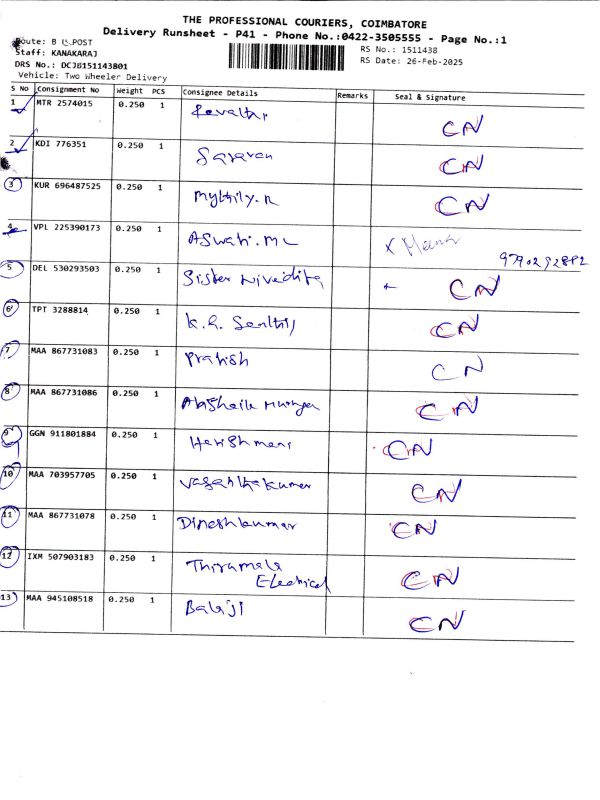 THE PROFESSIONAL COURIERS, COIMBATORE
Delivery Runsheet - P41 - Phone No.:0422-3505555 - Page No.:1
Route: B POST
RS No.: 1511438
Staff: KANAKARAJ
RS Date: 26-Feb-2025
DRS No.: DCJB151143801
Vehicle: Two Wheeler Delivery
S No Consignment No Weight PCS Consignee Details Remarks Seal & Signature
1 MTR 2574015 0.250 1 Revathi CN
2 KDI 776351 0.250 1 Saravan CN
3 KUR 696487525 0.250 1 Mythily.R CN
4 VPL 225390173 0.250 1 Aswati.M L X Meena
9790292882
5 DEL 530293503 0.250 1 Sister Nivedita CN
6 TPT 3288814 0.250 1 K.R. Senthil CN
7 MAA 867731083 0.250 1 Pratish CN
8 MAA 867731086 0.250 1 CN
9 GGN 911801884 0.250 1 Harish mani CN
10 MAA 703957705 0.250 1 Vasanthakumar CN
11 MAA 867731078 0.250 1 Dineshkumar CN
12 IXM 507903183 0.250 1 Thirumala CN
Electrical
13 MAA 945108518 0.250 1 Balaji CN